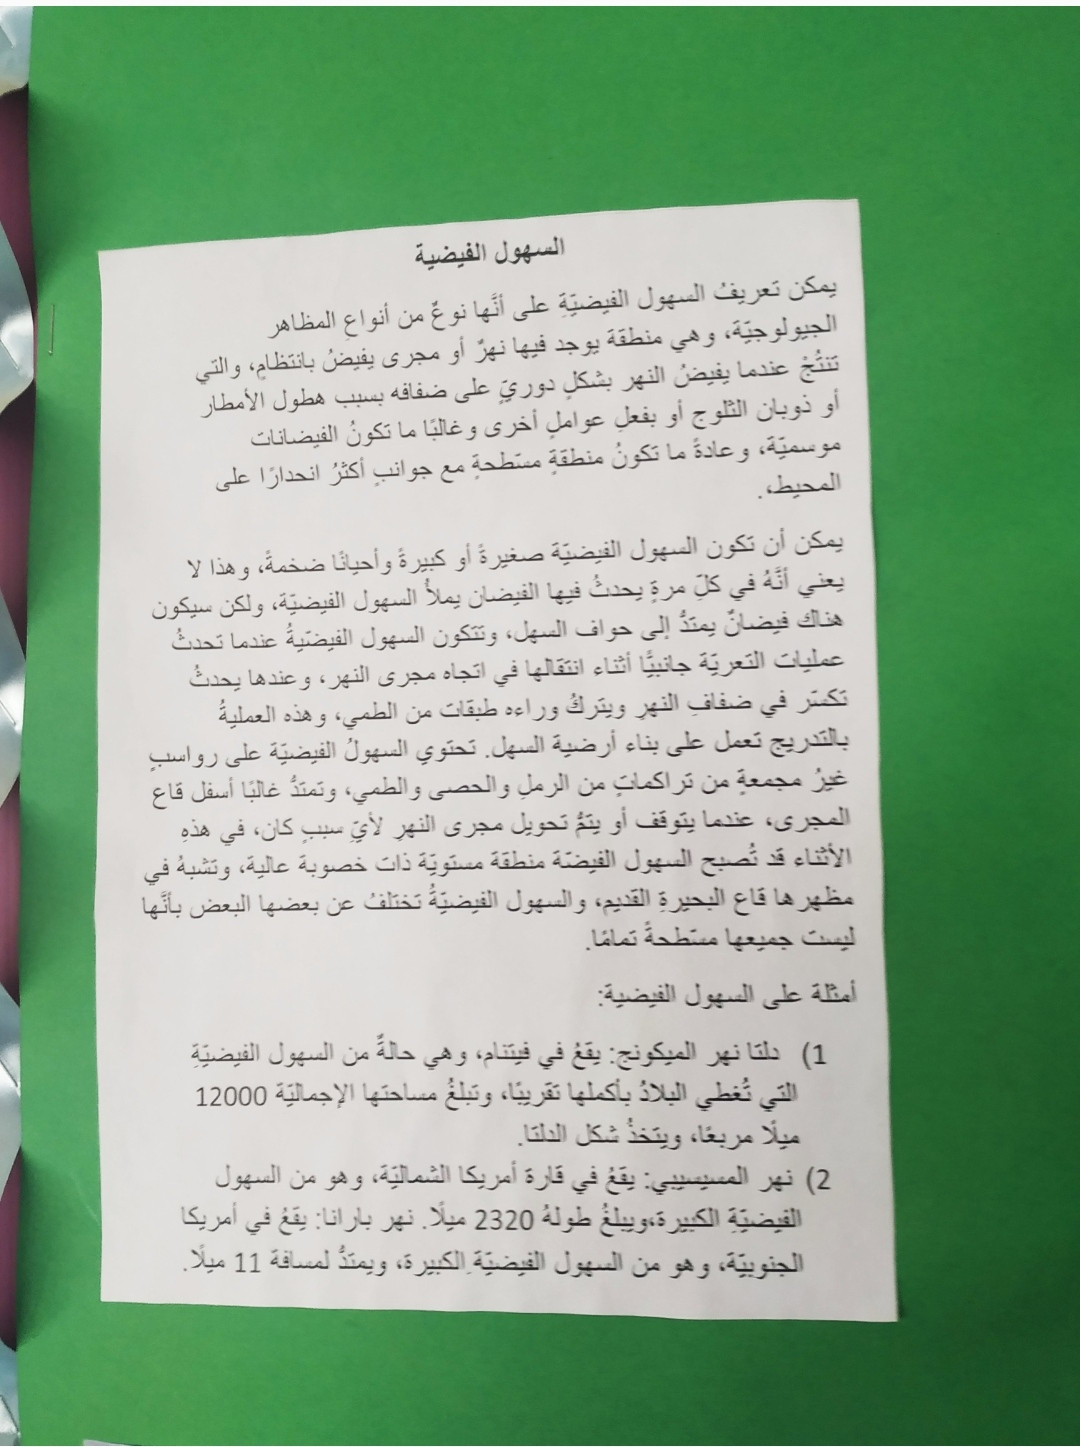 السهول الفيضية
يمكن تعريفُ السهول الفيضيّةِ على أنَّها نوعٌ من أنواعِ المظاهر
الجيولوجيّة، وهي منطقة يوجد فيها نهرٌ أو مجرى يفيضُ بانتظامٍ، والتي
تنتُجْ عندما يفيضُ النهر بشكلٍ دوريٍّ على ضفافه بسبب هطول الأمطار
أو ذوبان الثلوج أو بفعلِ عواملٍ أخرى وغالبًا ما تكونُ الفيضانات
موسميّة، وعادةً ما تكونُ منطقةٍ مسّطحةٍ مع جوانبٍ أكثرُ انحدارًا على
المحيط، .
يمكن أن تكون السهول الفيضيّة صغيرةً أو كبيرةً وأحيانًا ضخمةً، وهذا لا
يعني أنَّهُ في كلّ مرةٍ يحدثُ فيها الفيضان يملأُ السهول الفيضيّة، ولكن سيكون
هناك فيضانٌ يمتدُّ إلى حواف السهل، وتتكون السهول الفيضّيةُ عندما تحدثُ
عمليات التعريّة جانبيًّا أثناء انتقالها في اتجاه مجرى النهر، وعندها يحدثُ
تكسّر في ضفافِ النهرِ ويتركُ وراءه طبقات من الطمي، وهذه العمليةُ
بالتدريج تعمل على بناء أرضية السهل. تحتوي السهولُ الفيضيّة على رواسبٍ
غيرُ مجمعةٍ من تراكماتٍ من الرملِ والحصى والطمي، وتمتدُّ غالبًا أسفل قاع
المجرى، عندما يتوقف أو يتمُّ تحويل مجرى النهرِ لأيّ سببٍ كان، في هذهِ
الأثناء قد تُصبح السهول الفيضّة منطقة مستويّة ذات خصوبة عالية، وتشبهُ في
مظهرها قاع البحيرةِ القديم، والسهول الفيضيّةُ تختلفُ عن بعضها البعض بأنَّها
ليست جميعها مسّطحةً تمامًا.
أمثلة على السهول الفيضية:
1) دلتا نهر الميكونج: يقعُ في فيتنام، وهي حالةٌ من السهول الفيضيّةِ
التي تُغطي البلادُ بأكملها تقريبًا، وتبلغُ مساحتها الإجماليّة 12000
ميلًا مربعًا، ويتخذُ شكل الدلتا.
2) نهر المسيسيبي: يقعُ في قارة أمريكا الشماليّة، وهو من السهول
الفيضيّةِ الكبيرة،ويبلغُ طولهُ 2320 ميلًا. نهر بارانا: يقعُ في أمريكا
الجنوبيّة، وهو من السهول الفيضيّة الكبيرة، ويمتدُّ لمسافة 11 ميلًا.